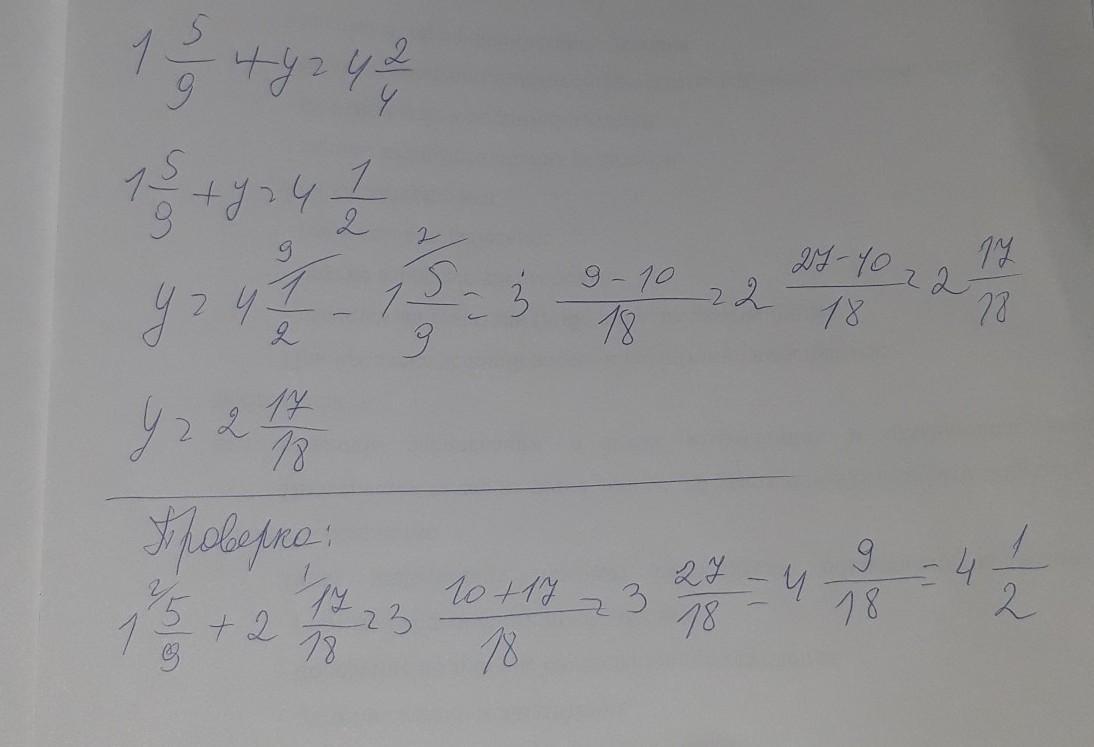 1 5/9 + y = 4 2/4
1 5/9 + y = 4 1/2
y = 4 9/ 1/2 - 1 2/ 5/9 = 3 (9-10)/18 = 2 (27-10)/18 = 2 17/18
y = 2 17/18
Проверка:
1 2/ 5/9 + 2 1/ 17/18 = 3 (10+17)/18 = 3 27/18 = 4 9/18 = 4 1/2